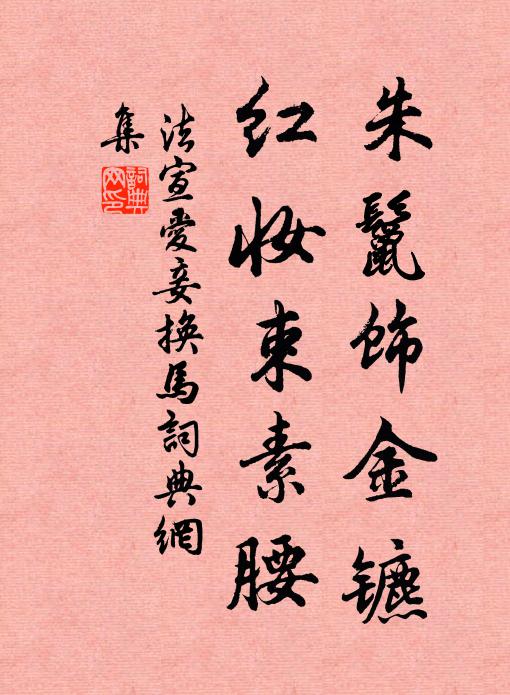 朱鬣饰金镳
红妆束素腰
法宣爱妾换馬詞典網
集
詞典网印